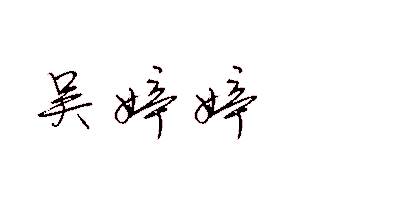 吴婷婷